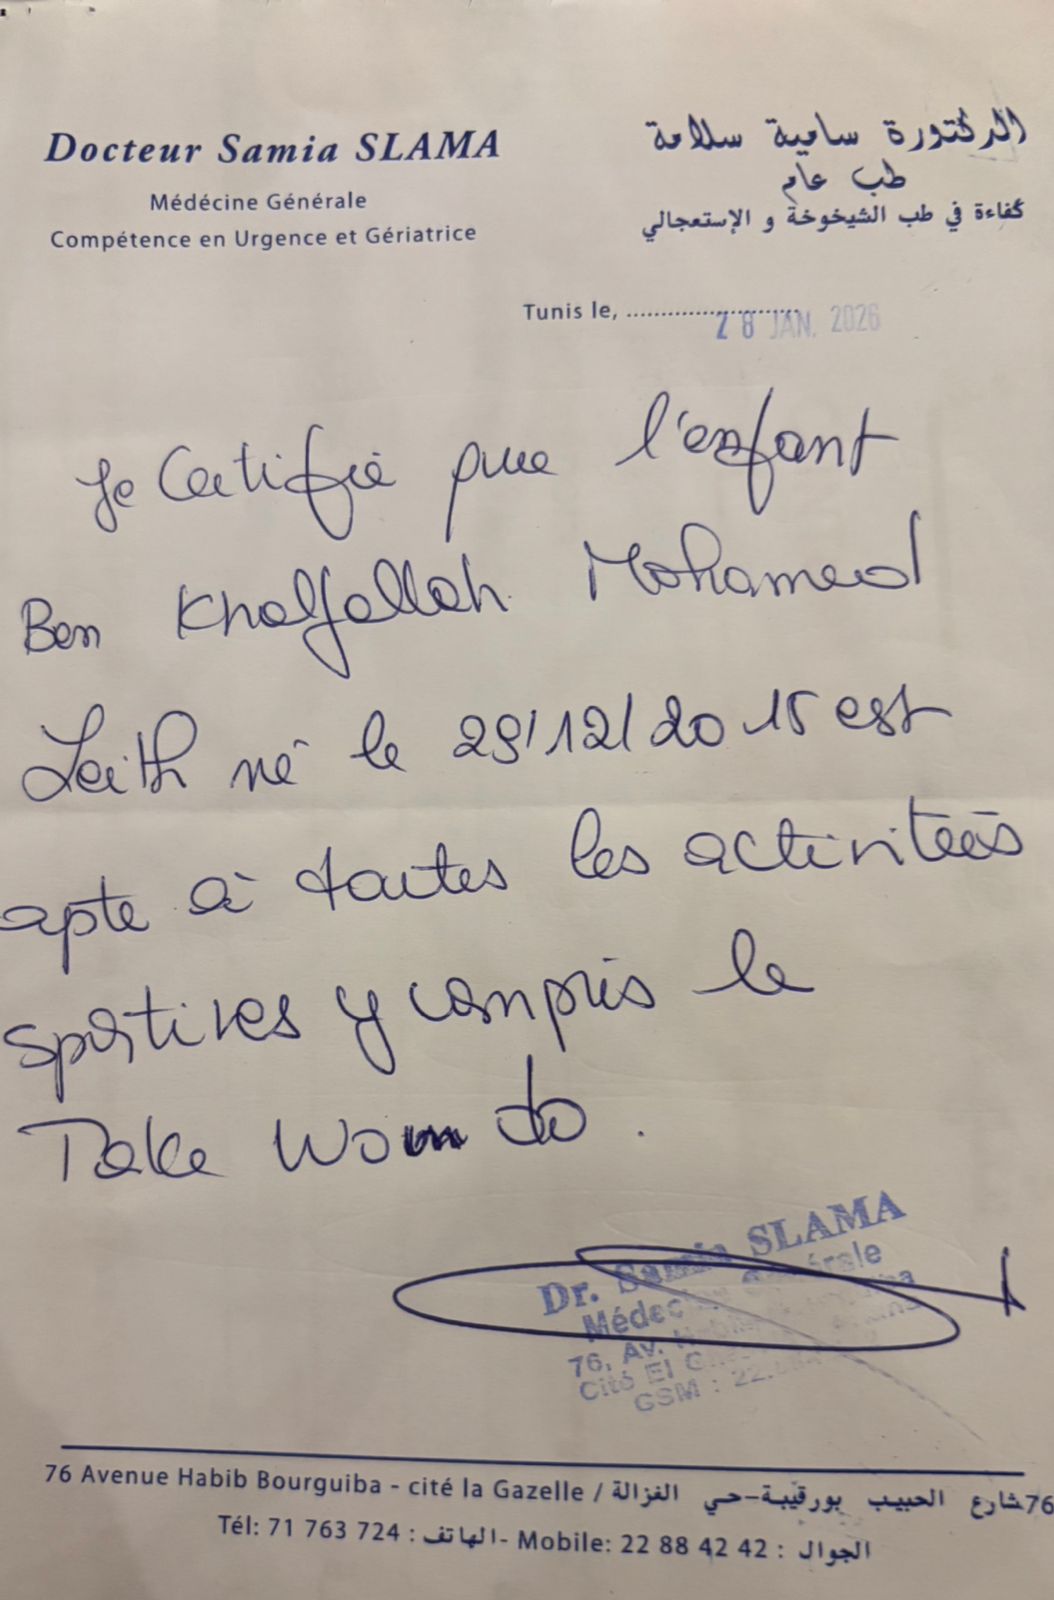 Docteur Samia SLAMA
Médécine Générale
Compétence en Urgence et Gériatrice
الدكتورة سامية سلامة
طب عام
كفاءة في طب الشيخوخة و الإستعجالي
Tunis le, ........................ 28 JAN. 2026
Je Certifie que l'enfant
Ben Khalfallah Mohamed
Leith né le 29/12/2015 est
apte à toutes les activiteés
sportives y compris le
Take Won do.
Dr. Samia SLAMA
Médecine Générale
76, Av.
Cité El
GSM : 22
76 Avenue Habib Bourguiba - cité la Gazelle / 76شارع الحبيب بورقيبة-حي الغزالة
Tél: 71 763 724 : الهاتف- Mobile: 22 88 42 42 : الجوال